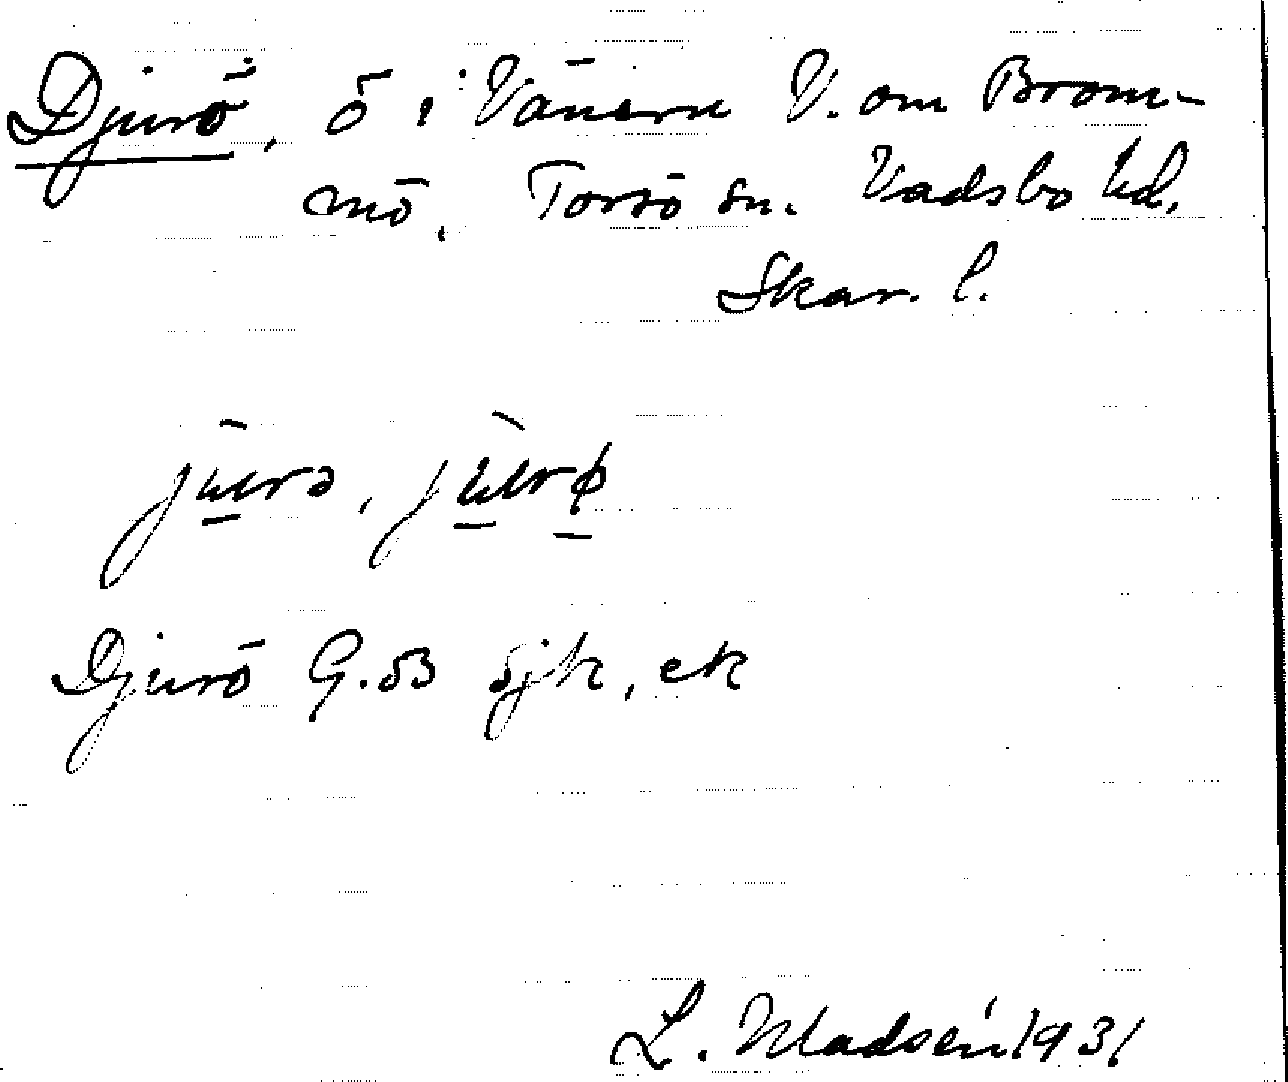 Djurö, ö i Vänern V. om Brom-
mö, Torsö sn. Vadsbo hd.
Skar. l.
jùrə, jùrø
Djurö G.ö3 sjk, ek
L. Madsén 1931